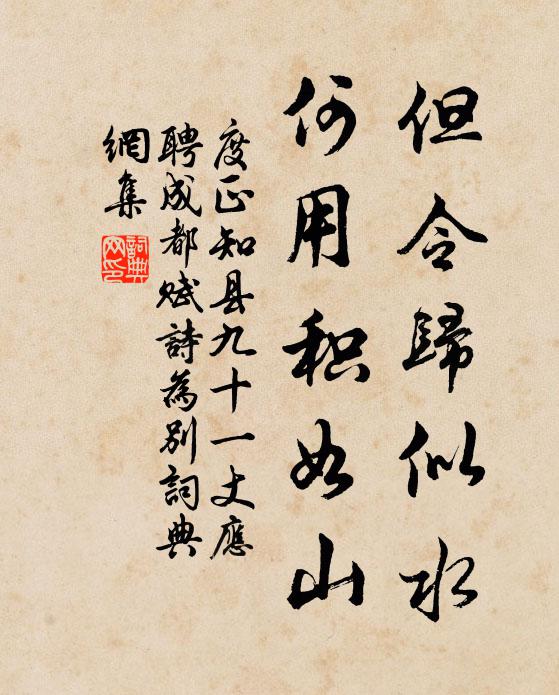 但令歸似水
何用积如山
度正知县九十一丈應
聘成都赋詩為别詞典
網集
詞典网印